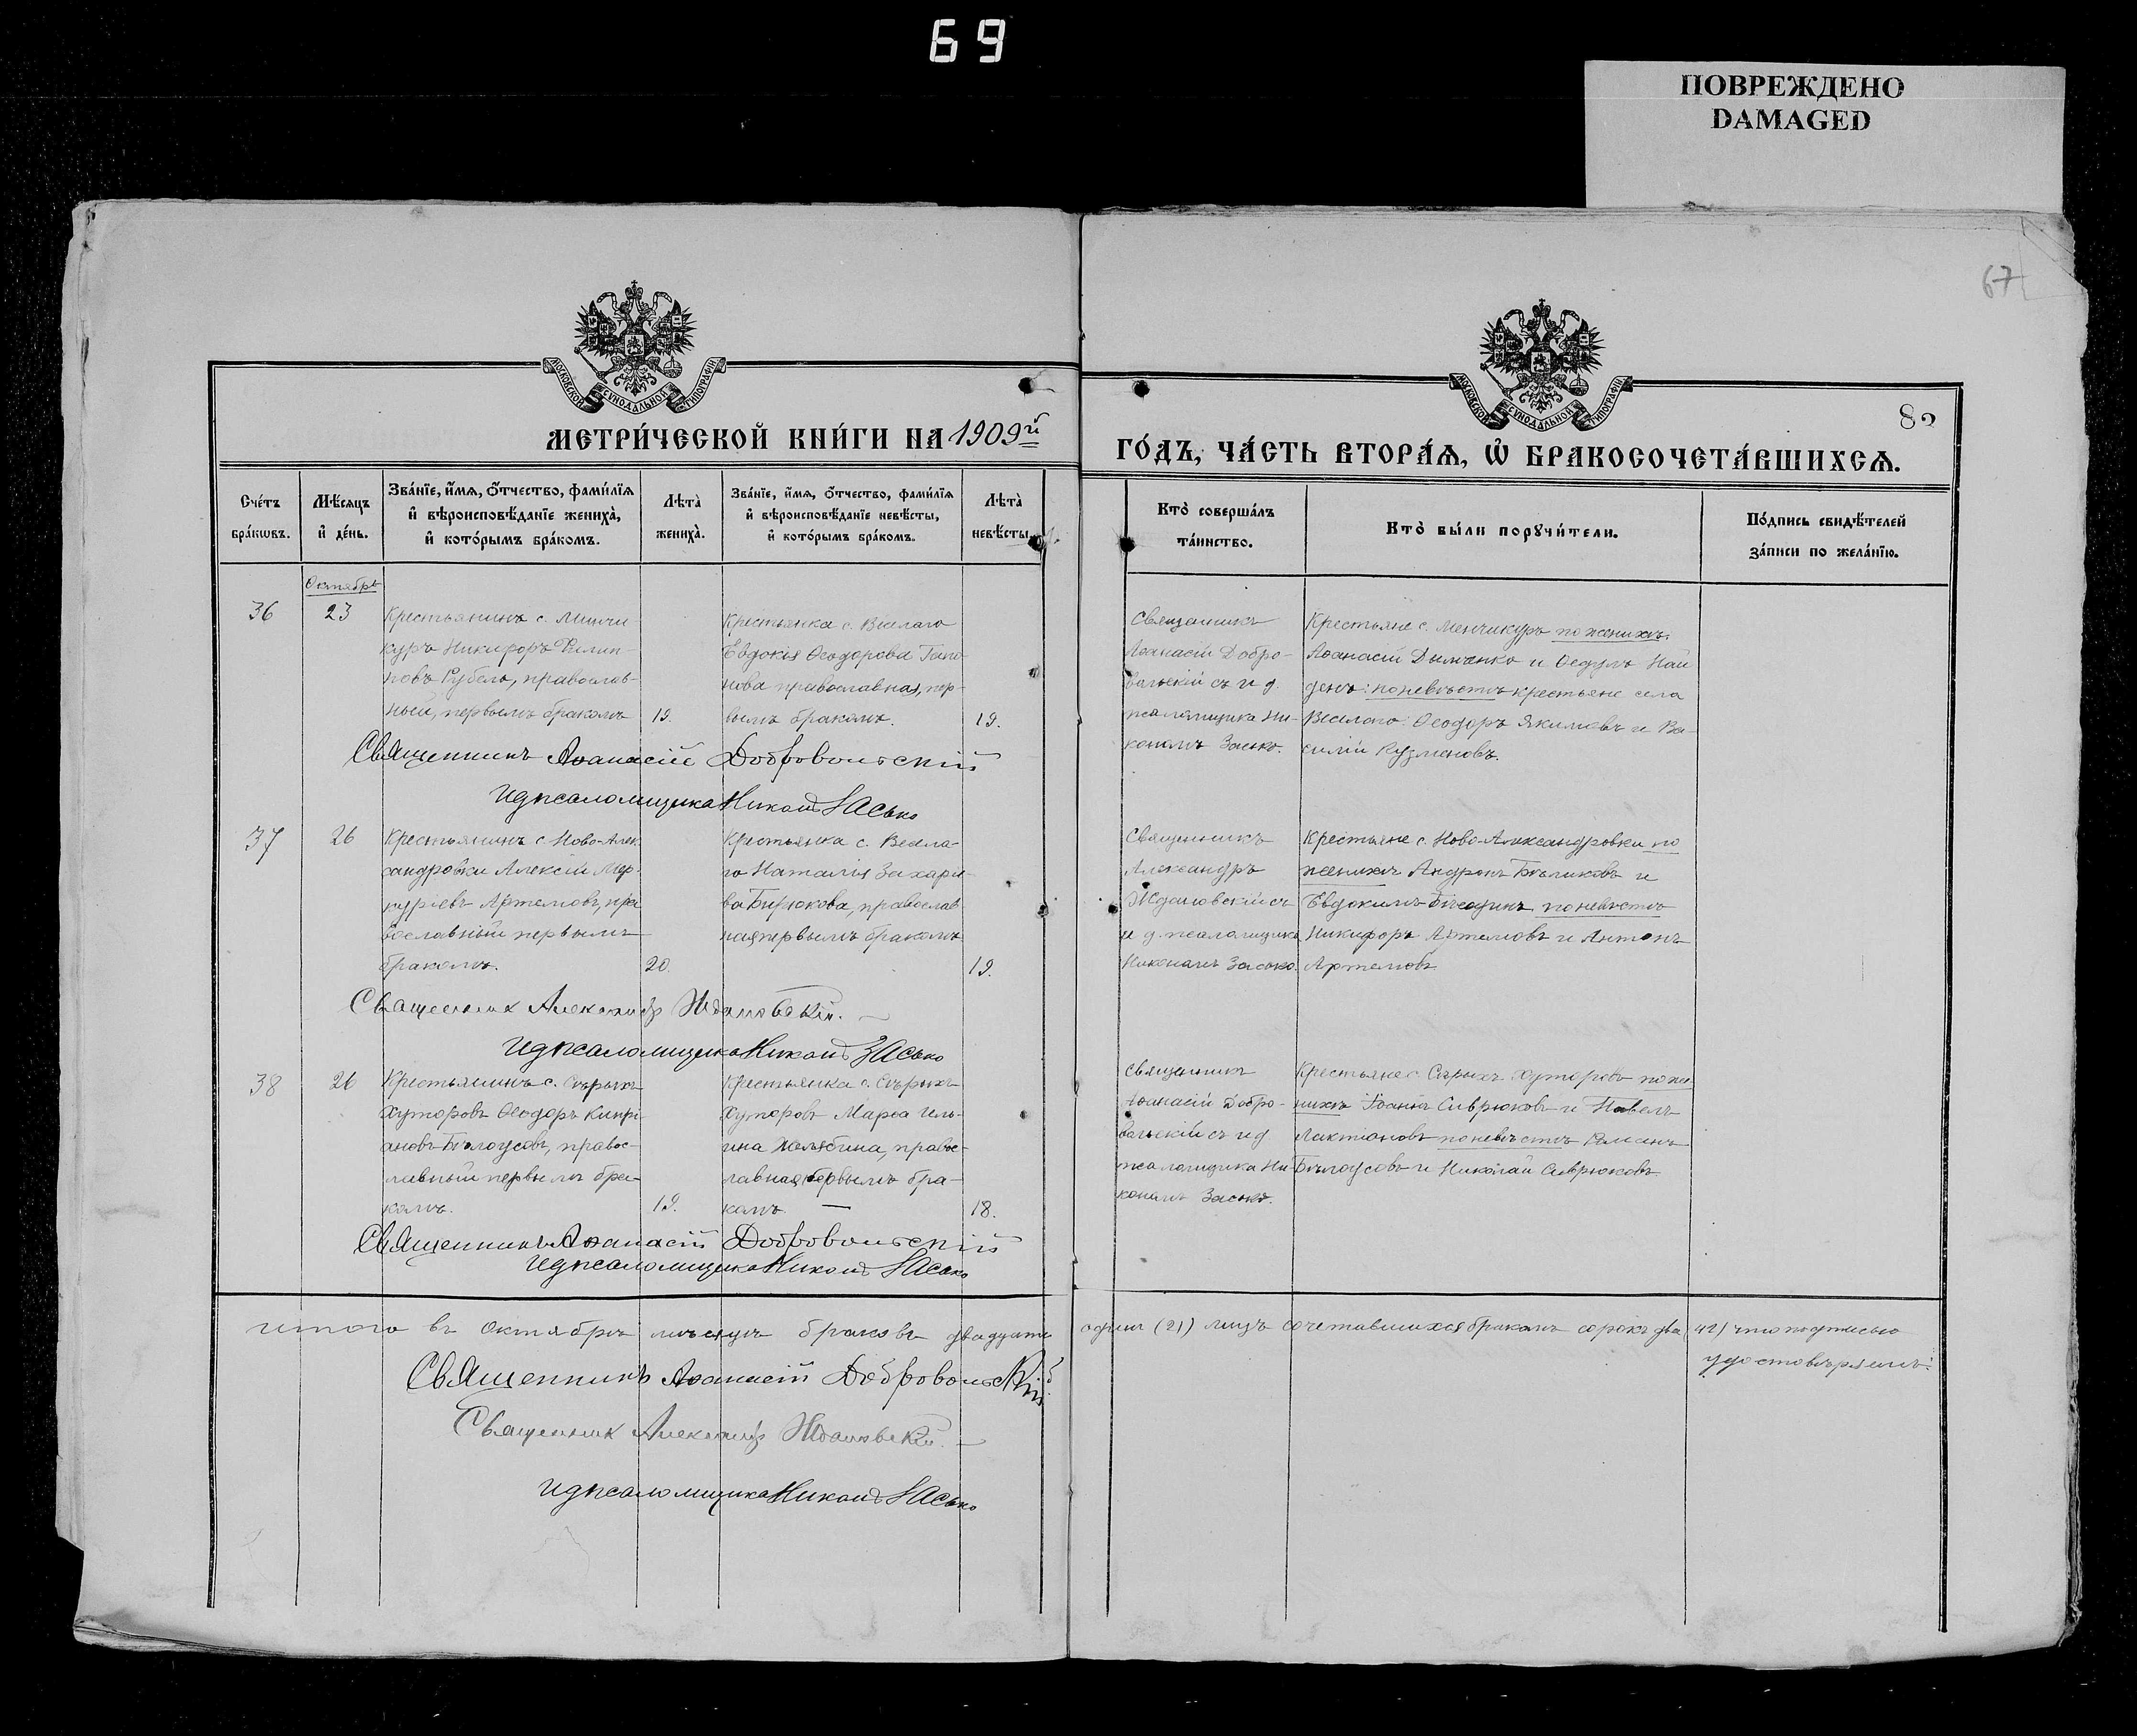 69
ПОВРЕЖДЕНО
DAMAGED
67
МОСКОВСКОЙ СУНОДАЛЬНОЙ ТИПОГРАФІИ
МОСКОВСКОЙ СУНОДАЛЬНОЙ ТИПОГРАФІИ
82
МЕТРИ́ЧЕСКОЙ КНИ́ГИ НА 1909й
ГО́ДЪ, ЧА́СТЬ ВТОРА́Ѧ, Ѽ БРАКОСОЧЕТА́ВШИХСѦ.
Сче́тъ
бра́кѡвъ.
Мѣ́сѧцъ
и҆ де́нь.
Зва́нїе, и҆́мѧ, ѻ҆́тчество, фами́лїѧ
и҆ вѣроисповѣ́данїе жениха̀,
и҆ кото́рымъ бра́комъ.
Лѣта̀
жениха̀.
Зва́нїе, и҆́мѧ, ѻ҆́тчество, фами́лїѧ
и҆ вѣроисповѣ́данїе невѣ́сты,
и҆ кото́рымъ бра́комъ.
Лѣта̀
невѣ́сты.
Кто̀ соверша́лъ
та́инство.
Кто̀ бы́ли порꙋчи́тели.
По́дпись свидѣ́телей
за́писи по жела́нїю.
Октябрь
36
23
Крестьянинъ с. Менчи-
куръ Никифоръ Филип-
повъ Рубель, православ-
ный, первымъ бракомъ
19.
Крестьянка с. Веселаго
Евдокія Ѳеодорова Гапо-
нова православная, пер-
вымъ бракомъ.
19.
Священникъ
Аѳанасій Добро-
вольскій съ и д.
псаломщика Ни-
кономъ Засько.
Крестьяне с. Менчикуръ по женихѣ:
Аѳанасій Дымченко и Ѳедулъ Най
денъ: по невѣстѣ крестьяне села
Веселаго: Ѳеодоръ Якимовъ и Ва-
силій Кузменовъ.
Священникъ Аѳанасій Добровольскій
и д псаломщика Никонъ Засько
37
26
Крестьянинъ с. Ново-Алек
сандровки Алексій Мер-
куріевъ Артемовъ, пра
вославный первымъ
бракомъ.
20.
Крестьянка с. Весела-
го Наталія Захарі-
ва Бирюкова, православ
ная первымъ бракомъ
19.
Священникъ
Александръ
Ждановскій съ
и д. псаломщика
Никономъ Засько.
Крестьяне с. Ново-Александровки по
женихѣ Андронъ Бѣликовъ и
Евдокимъ по невѣстѣ
Никифоръ Артемовъ и Антонъ
Артемовъ
Священник Александр Ждановскій.
и д псаломщика Никонъ Засько
38
26
Крестьянинъ с. Сѣрыхъ
Хуторовъ Ѳеодоръ Кипрі-
ановъ Бѣлоусовъ, правос-
лавный первымъ бра-
комъ.
19.
Крестьянка с. Сѣрыхъ
Хуторовъ Марѳа Иль-
ина правос-
лавная первымъ бра-
комъ. —
18.
Священникъ
Аѳанасій Добро-
вольскій съ и д
псаломщика Ни-
кономъ Засько.
Крестьяне с. Сѣрыхъ Хуторовъ по же-
нихѣ Іоаннъ Сиврюковъ и Павелъ
Лактіоновъ по невѣстѣ Романъ
Бѣлоусовъ и Николай Сиврюковъ.
Священникъ Аѳанасій Добровольскій
и д псаломщика Никонъ Засько
Итого въ Октябрѣ мѣсяцѣ браковъ двадцать одинъ (21) лицъ сочетавшихся бракомъ сорокъ два (42) что подписью
удостовѣряемъ:
Священникъ Аѳанасій Добровольскій
Священник Александр Ждановскій. —
и д псаломщика Никонъ Засько